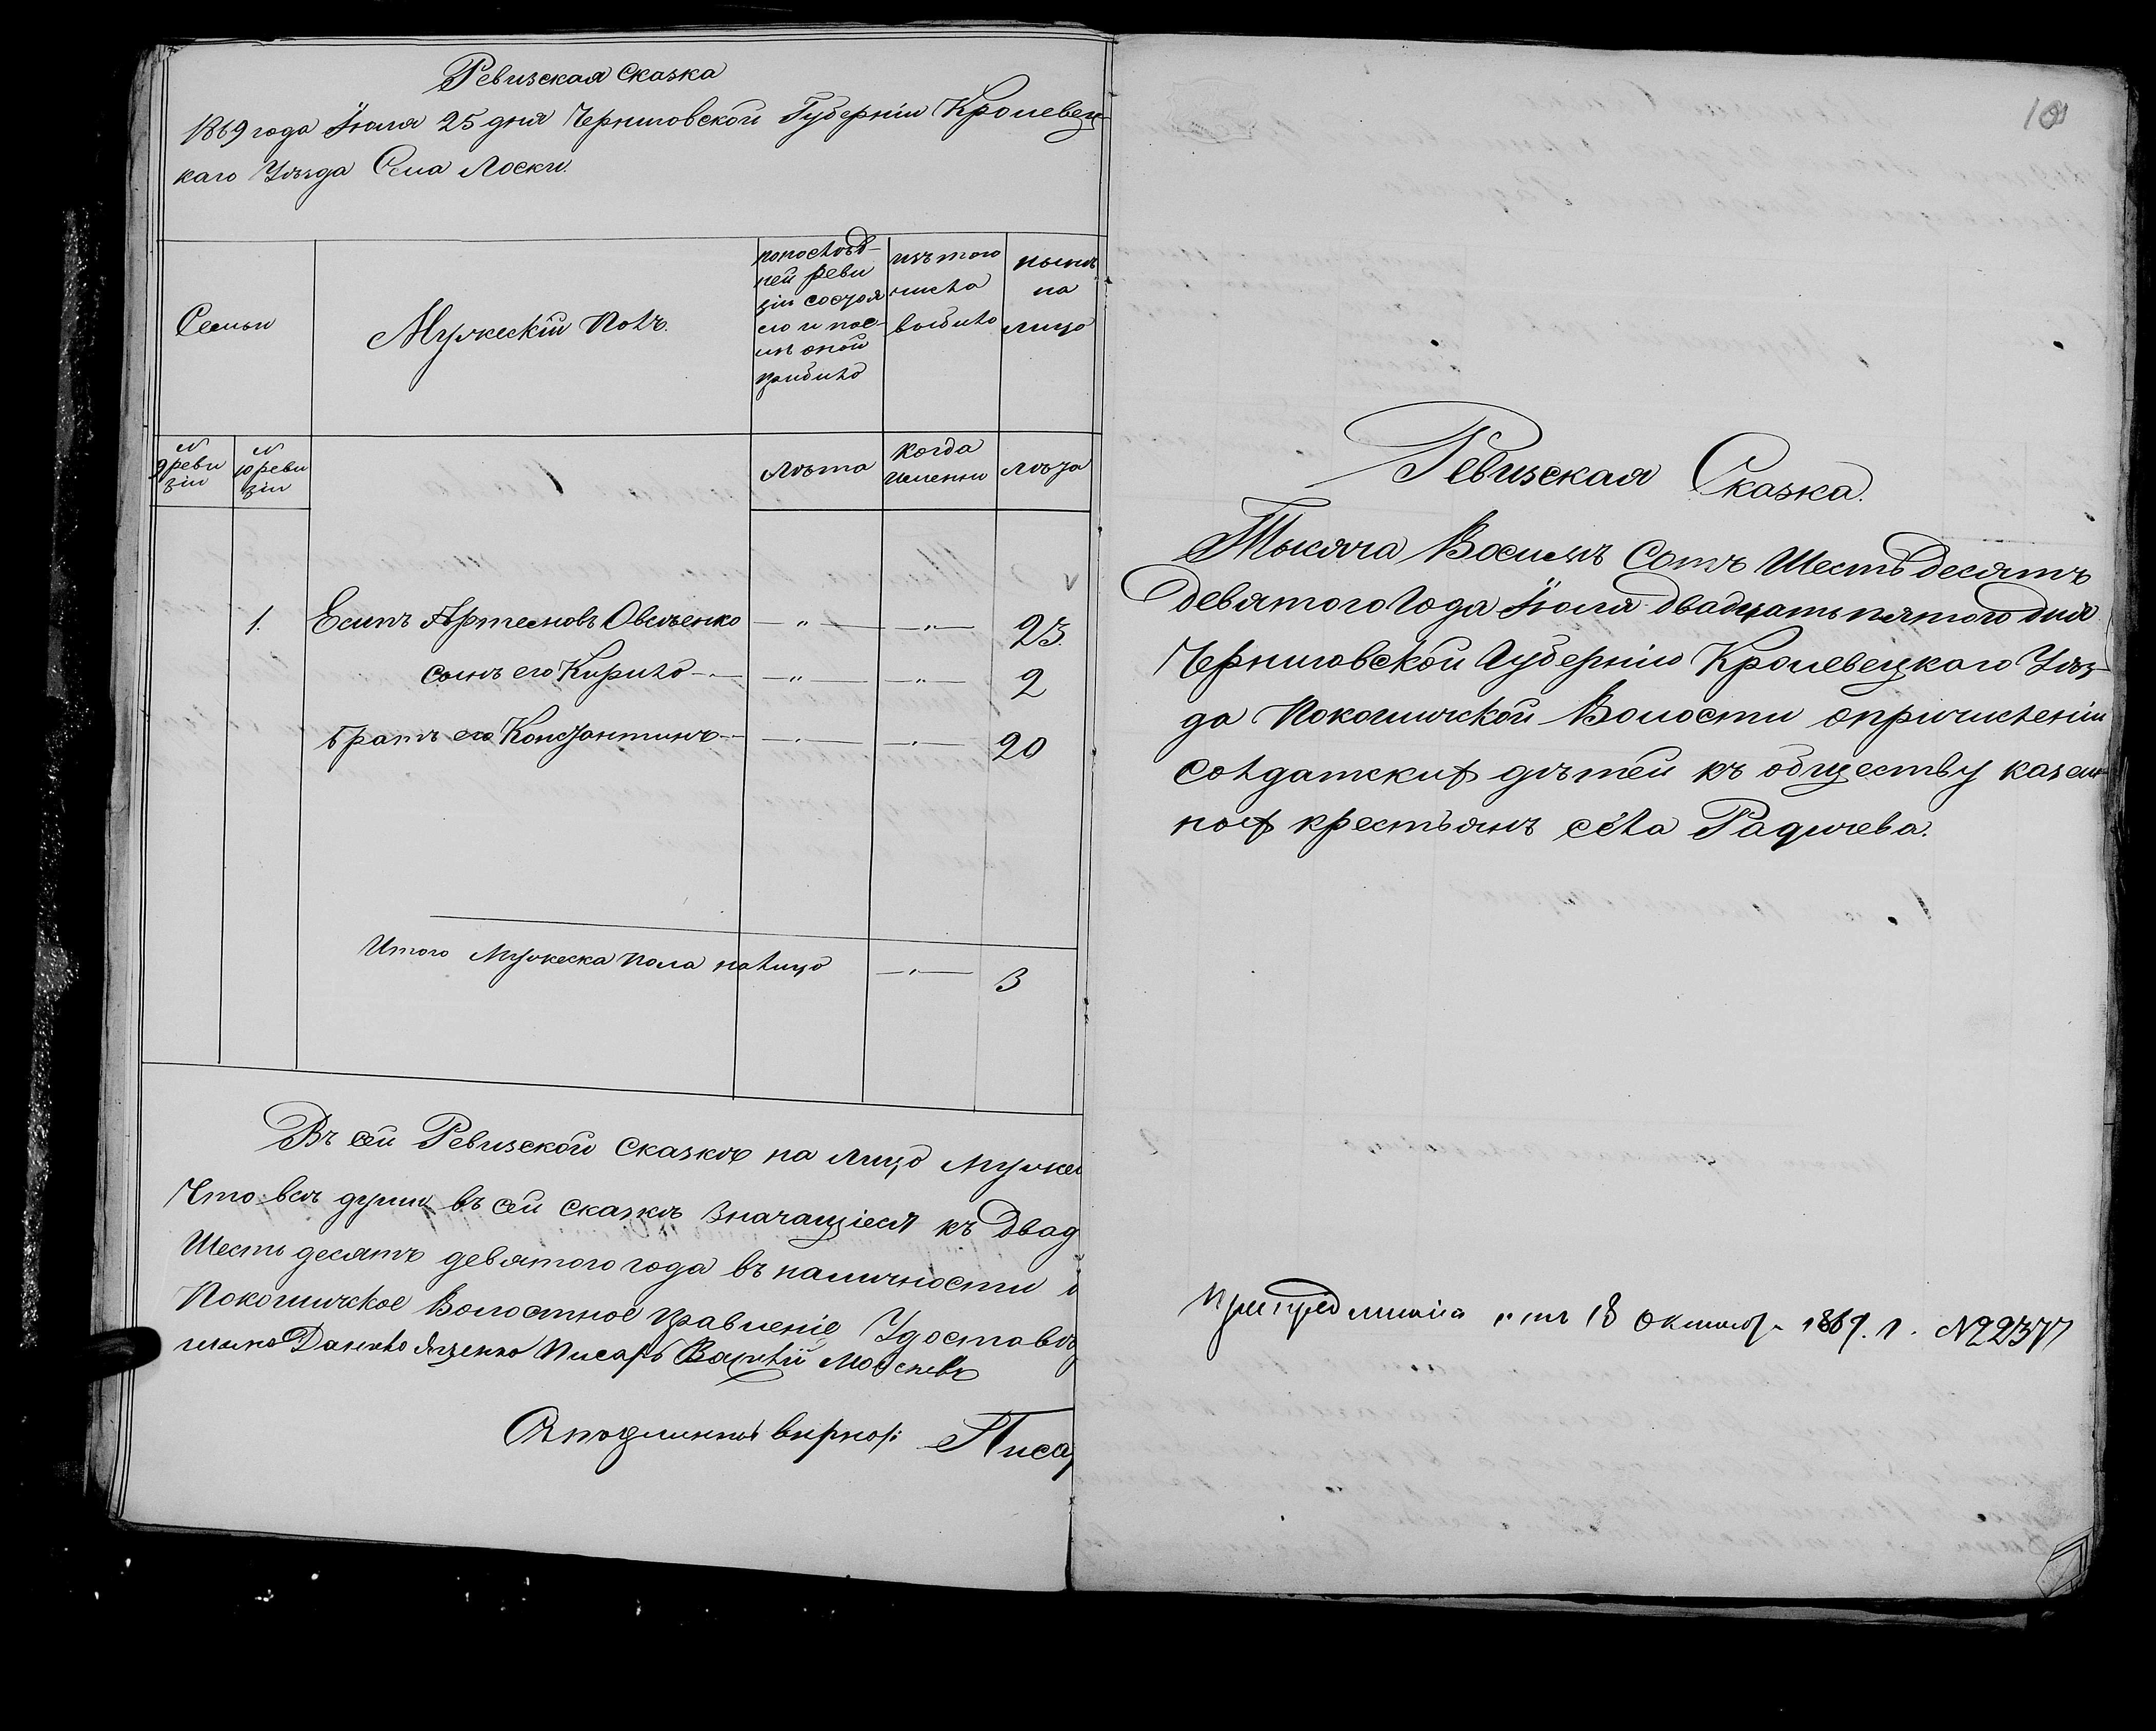 Ревизская Сказка
1869 года Іюля 25 дня Черниговской Губерніи Кролевец-
каго Уѣзда Села Лоски.
Семьи
Мужескій Полъ.
по послѣд-
ней реви
зіи состоя
ло и пос-
лѣ оной
прибыло
изъ того
числа
выбыло
нынѣ
на
лицо
N
9 реви
зіи
N
10 реви
зіи
лѣта
когда
именно
лѣта
1. Есипъ Артемовъ Овсѣенко — „ — — „ — 23.
сынъ его Кирило — „ — — „ — 2
братъ его Константинъ — „ — — „ — 20
Итого Мужеска пола налицо — „ — 3
Въ сей Ревизской Сказкѣ на лицо мужес
Что всѣ души въ сей сказкѣ значащіеся къ двад
Шесть десятъ девятого года въ наличности
Покошичское Волостное Правленіе Удостовѣ
Данило Яценко Писарь Моисеевъ
Съ подлиннымъ вѣрно: Писа
101
Ревизская Сказка.
Тысяча Восимъ Сотъ Шесть десятъ
девятого Года Іюля двадцать пятого дня
Черниговской Губерніи Кролевецкаго Уѣз-
да Покошичской Волости опричисленіи
солдатскихъ дѣтей къ обществу казен-
ныхъ крестьянъ села Радичева.
18 Октября 1869. г. N 22377